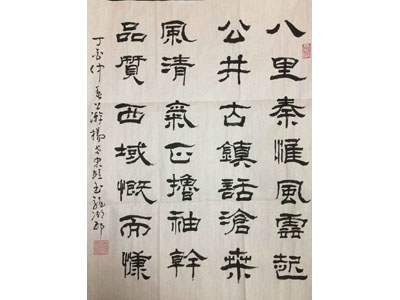 八里秦淮風雲起
公井古鎮話滄桑
風清氣正擼袖幹
品質西域慨而慷
丁酉仲春